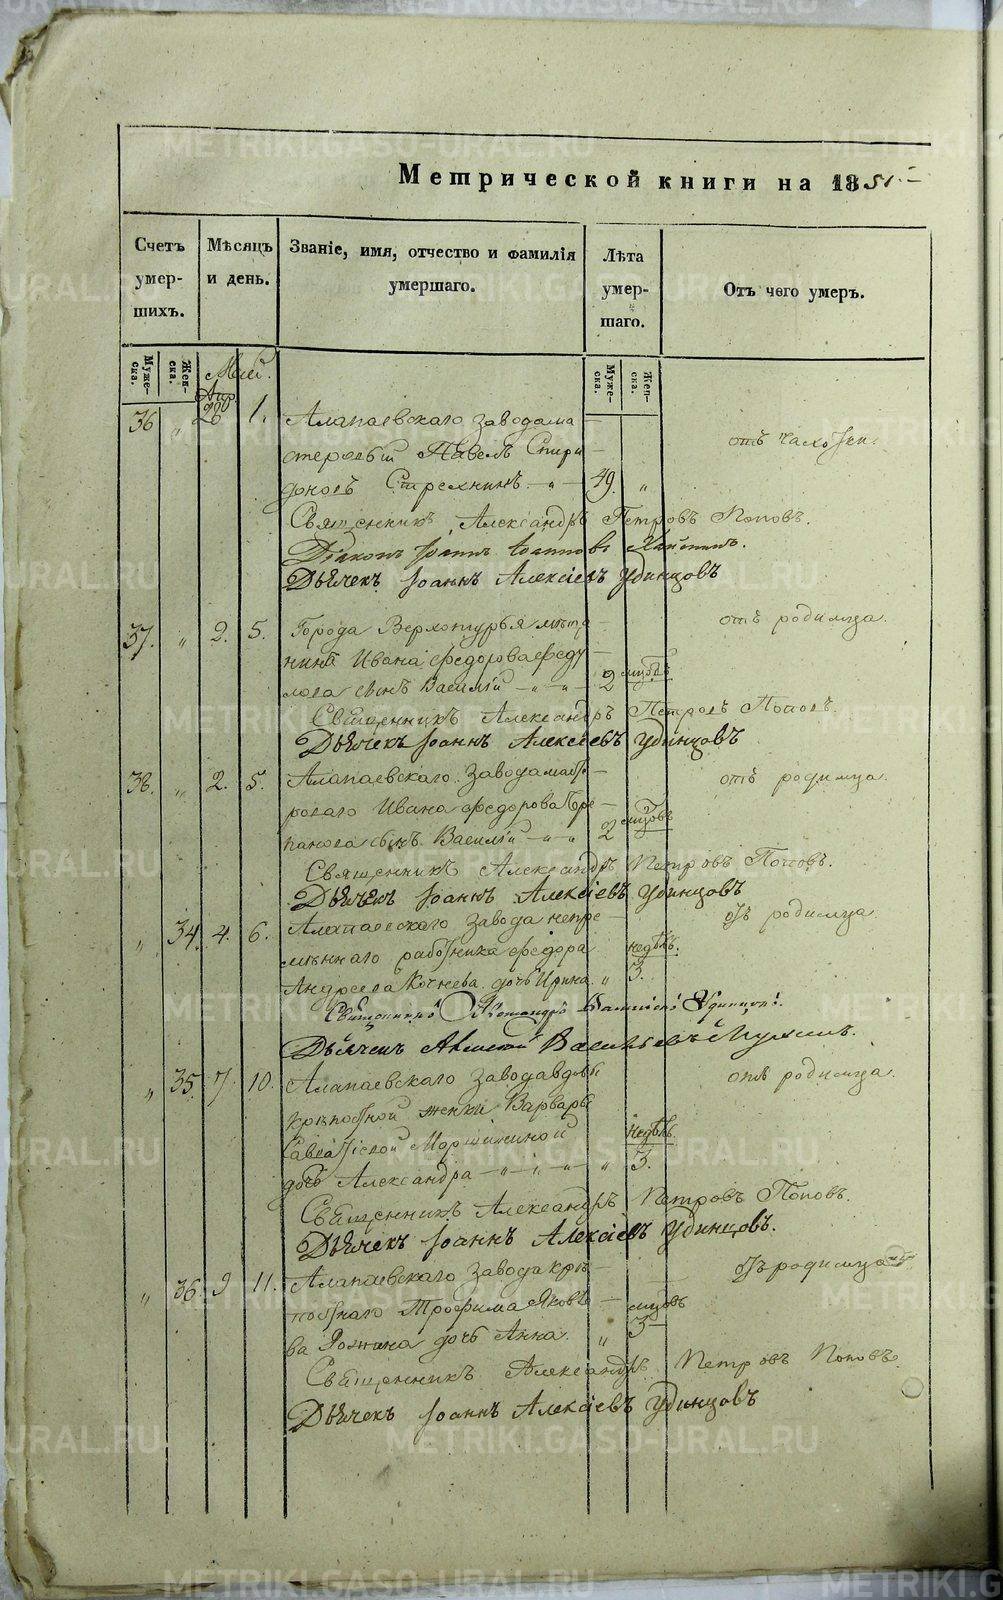 Метрической книги на 1851.
Счетъ умершихъ. Мѣсяцъ и день. Званіе, имя, отчество и фамилія умершаго. Лѣта умершаго. Отъ чего умеръ.
Мужеска. Женска. Мужеска. Женска.
Май.
Апр.
36 " 28 1. Алапаевскаго завода ма-
стеровый Павелъ Спири- отъ чахотки.
доновъ Стрехнинъ - " - 49. "
Священникъ Александръ Петровъ Поповъ.
Діаконъ Іоаннъ Іоанновъ
Дьячекъ Іоаннъ Алексіевъ Удинцовъ
37. " 2. 5. Города Верхотурья мѣща- отъ родимца.
нина Ивана Федорова Феду-
лова сынъ Василій - " - " - 2 мцовъ
Священникъ Александръ Петровъ Поповъ.
Дьячекъ Іоаннъ Алексіевъ Удинцовъ
38. " 2. 5. Алапаевскаго завода масте- отъ родимца.
роваго Ивана Федорова
сынъ Василій - " - " 2 мцовъ
Священникъ Александръ Петровъ Поповъ.
Дьячекъ Іоаннъ Алексіевъ Удинцовъ
" 34. 4. 6. Алапаевскаго завода непре- отъ родимца
мѣннаго работника Федора недѣль.
Андреева Кочнева дочь Ирина. " 3.
Священникъ Александръ Удинцовъ.
Дьячекъ Алексѣй Васильевъ
" 35. 7. 10. Алапаевскаго завода вдовы отъ родимца.
крѣпостной женки Варвары
Савватіевой недѣль
дочь Александра - " - " - " - " 3.
Священникъ Александръ Петровъ Поповъ.
Дьячекъ Іоаннъ Алексіевъ Удинцовъ.
" 36. 9 11. Алапаевскаго завода крѣ- отъ родимца
постнаго Трофима Яковле- мцовъ
ва дочь Анна. " 3
Священникъ Александръ Петровъ Поповъ.
Дьячекъ Іоаннъ Алексіевъ Удинцовъ
METRIKI.GASO-URAL.RU